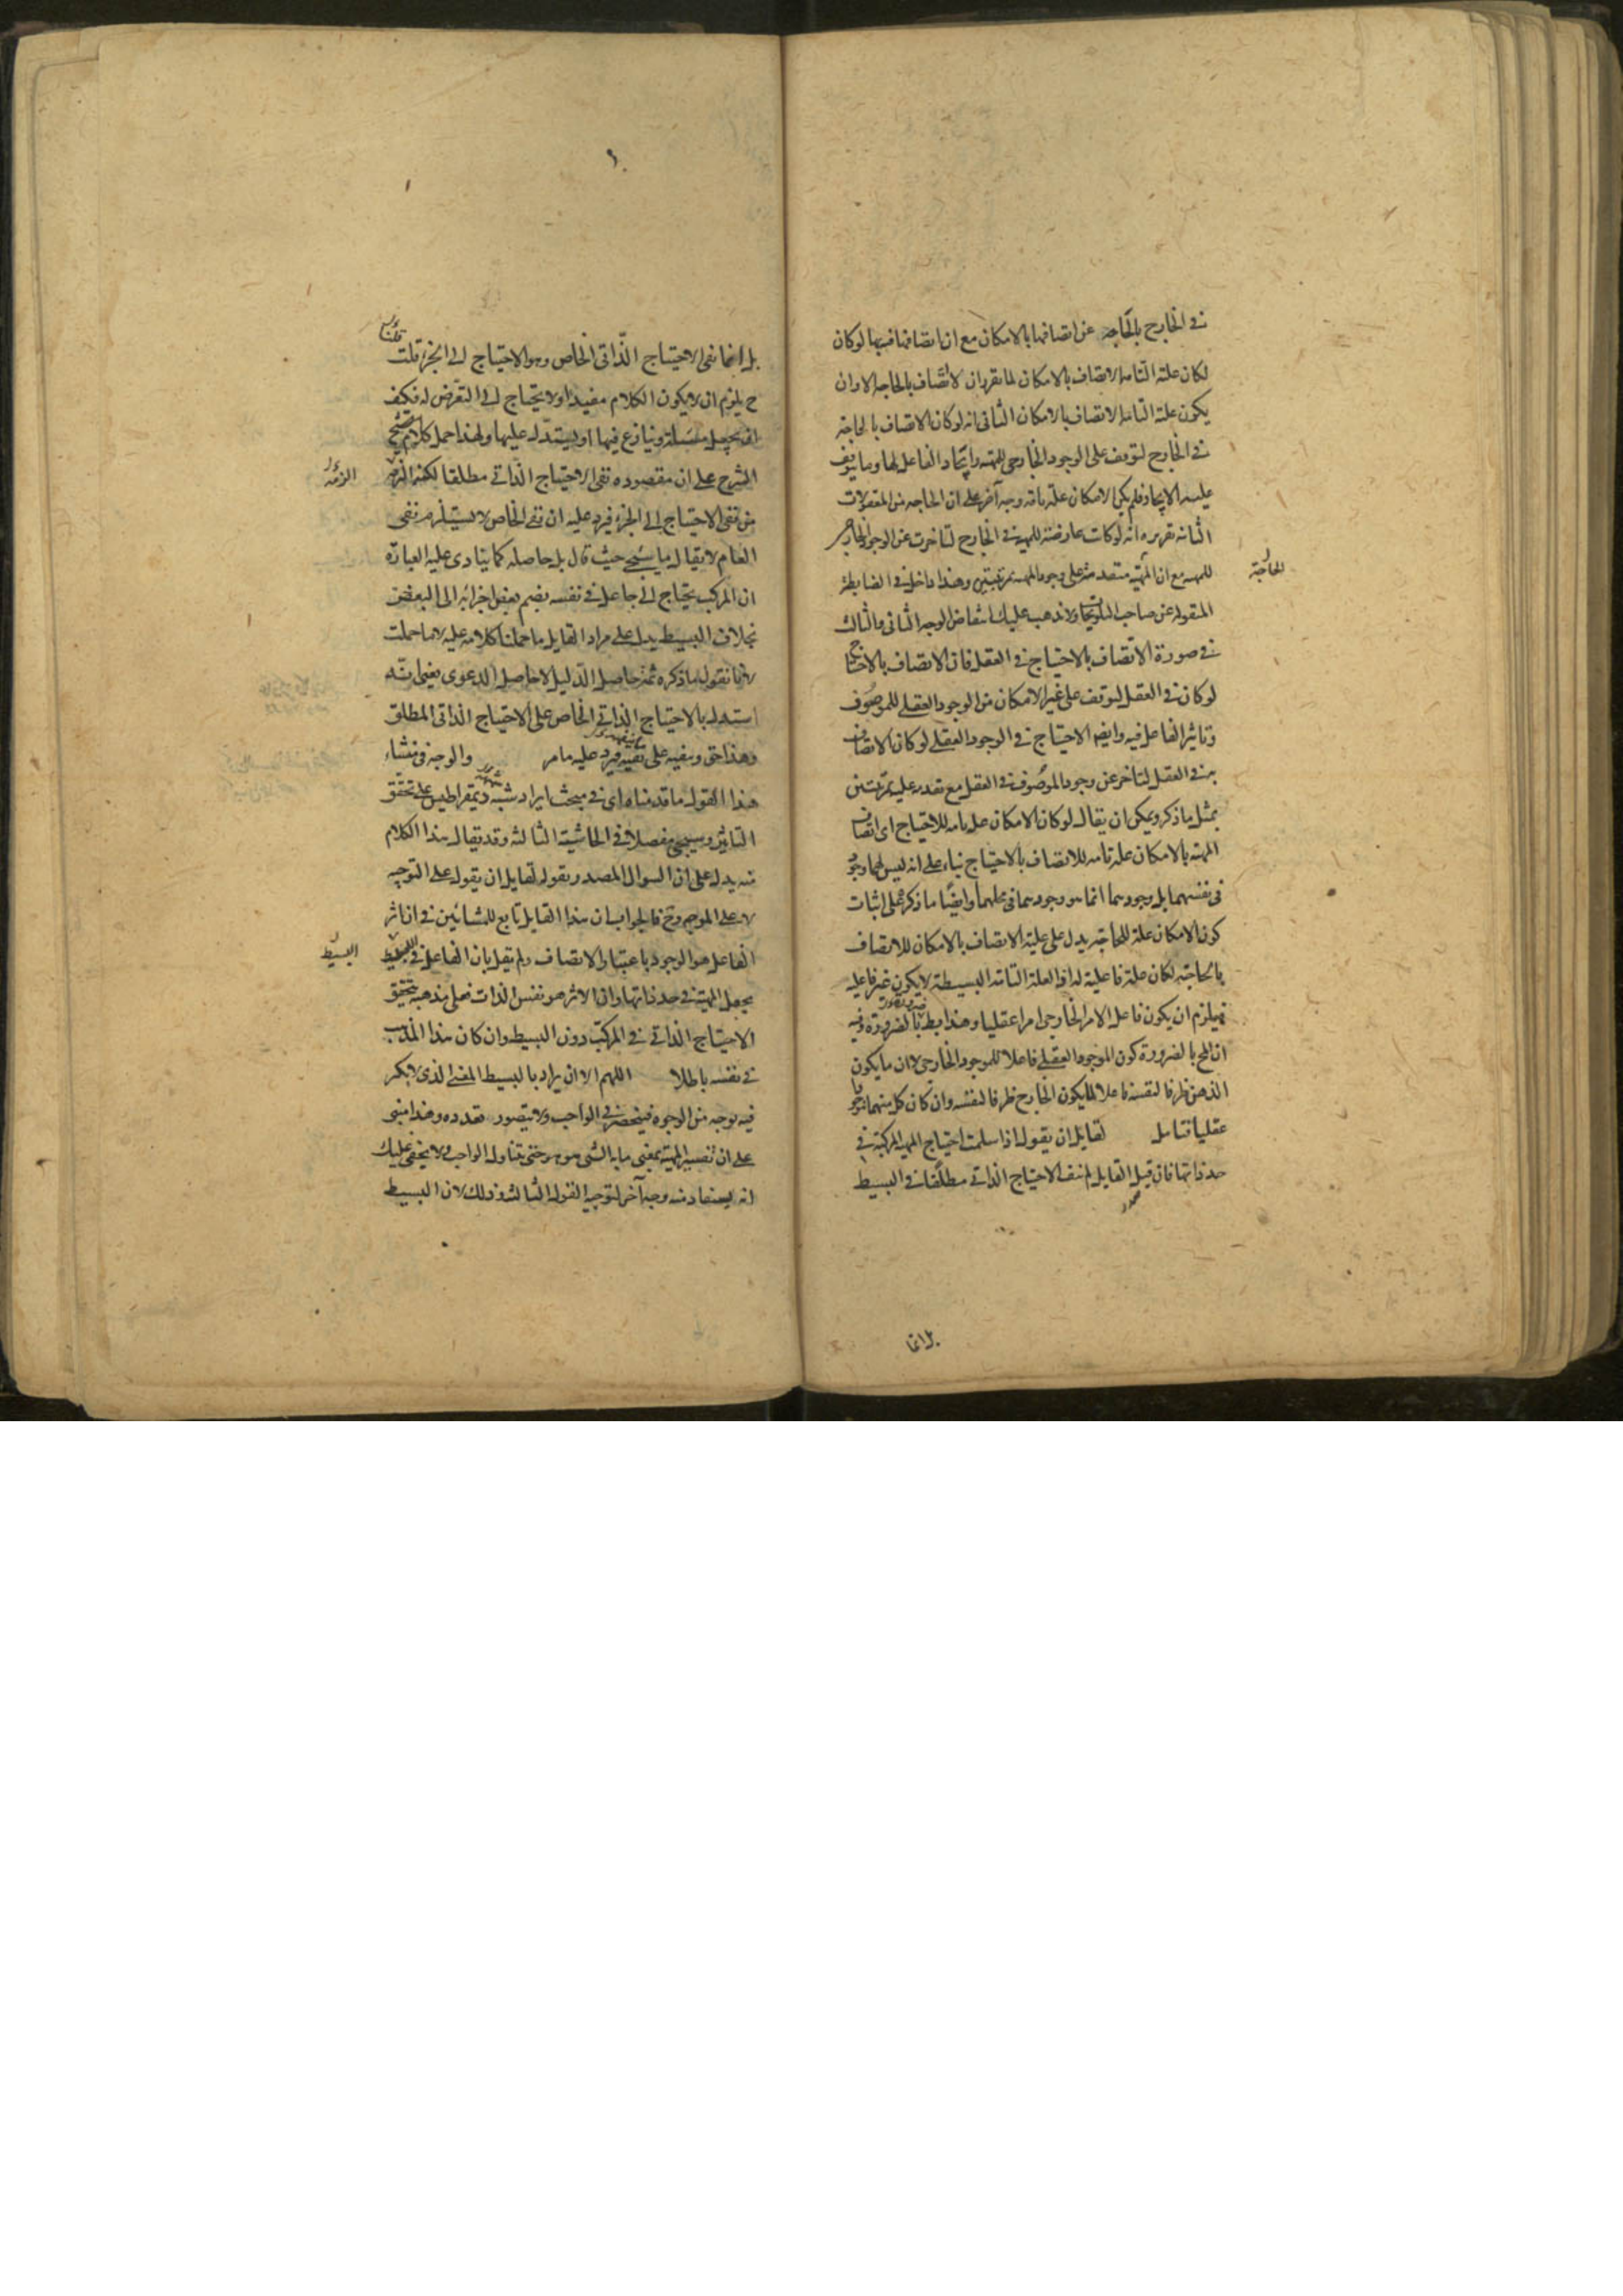 في الخارج بالحاجة عن اتصافها بالامكان مع ان اتصافها فيها لوكان
لكان علته التامه الاتصاف بالامكان لما تقرران لا اتصاف بالحاجه الا وان
يكون علته التامه الاتصاف بالامكان الثانى انه لوكان الاتصاف بالحاجة
في الخارج لتوقف على الوجود الخارجى للمهية وايجاد الفاعل لها وما يتوقف
عليه الايجاد فلم يكن الامكان علة تامة وجه آخر على ان الحاجه من المعقولات
الثانية تقريره انه لوكانت عارضة للمهية في الخارج لتاخرت عن الوجود الخارجى
للمهيه مع ان المهية متقدمة على وجود المهيه بمرتبتين وهذا داخل في الضابطة
الحاجة
المنقوله عن صاحب التلويحات ولا يذهب عليك انتقاض الوجه الثانى والثالث
في صورة الاتصاف بالاحتياج في العقل فان الاتصاف بالاحتياج
لوكان في العقل لتوقف على غير الامكان من الوجود العقلى للموصوف
وتاثير الفاعل فيه وايضا الاحتياج في الوجود العقلى لوكان الاتصاف
به في العقل لتاخر عن وجود الموصوف في العقل مع تقدمه عليه بمرتبتين
بمثل ما ذكر ويمكن ان يقال لوكان الامكان علة تامه للاحتياج اى اتصاف
المهية بالامكان علة تامه للاتصاف بالاحتياج بناء على انه ليس لهما وجود
فى نفسهما بل وجودهما انما هو وجودهما فى محلهما وايضا ما ذكر على اثبات
كون الامكان علة للحاجة يدل على علية الاتصاف بالامكان للاتصاف
بالحاجة لكان علة فاعلية له اذ العلة التامة البسيطة لا يكون غير فاعلية
فيلزم ان يكون فاعل الامر الخارجى امرا عقليا وهذا بط بالضرورة وفيه
ان المح بالضرورة كون الموجود العقلى فاعلا للموجود الخارجى لا ان ما يكون
الذهن ظرفا لنفسه فاعلا لما يكون الخارج ظرفا لنفسه وان كان كل منهما موجودا
عقليا تامل لقايل ان يقول اذا سلمت احتياج المهية المركبة في
حد ذاتها فان قيل القايل لم ينف الاحتياج الذاتى مطلقا في البسيط
بل انما
بل انما نفى الاحتياج الذاتى الخاص وهو الاحتياج الى الجزء قلت
ح يلزم ان لا يكون الكلام مفيدا ولا يحتاج الى التعرض له فكيف
ان يجعل مسئلة وينازع فيها او يستدل عليها ولهذا حمل كلامه
الشرح على ان مقصوده نفى الاحتياج الذاتى مطلقا لكنه الزمه
الزمه
من نفى الاحتياج الى الجزء فيرد عليه ان نفى الخاص لا يستلزم نفى
العام لا يقال ما سيجى حيث قال بل حاصله كما ينادى عليه العبارة
ان المركب يحتاج الى جاعل في نفسه يضم بعض اجزائه الى البعض
بخلاف البسيط يدل على مراد القايل ما حملنا كلامه عليه لا ما حملت
لانا نقول ما ذكره ثمه حاصل الدليل لا حاصل الدعوى يعنى انه
استدل بالاحتياج الذاتى الخاص على الاحتياج الذاتى المطلق
وهذا حق وبنفيه على نفيه فيرد عليه مامر والوجه فى منشاء
هذا القول ما قدمناه اى في مبحث ايراد شبهة ديمقراطيس على تحقق
التاثير وسيجئ مفصلا في الحاشية الثالثة وقد يقال هذا الكلام
منه يدل على ان السوال المصدر بقوله لقايل ان يقول على التوجيه
لا على الموجه وح فالجواب ان هذا القايل تابع للمشائين في ان اثر
الفاعل هو الوجود باعتبار الاتصاف ولم يقل بان الفاعل في البسيط
البسيط
يجعل المهية في حد ذاتها وان الاثر هو نفس الذات فعلى مذهبه يتحقق
الاحتياج الذاتى في المركب دون البسيط وان كان هذا المذهب
في نفسه باطلا اللهم الا ان يراد بالبسيط المعنى الذى لا تكثر
فيه بوجه من الوجوه فينحصر في الواجب ولا يتصور تعدده وهذا مبنى
على ان تفسير المهية بمعنى ما به الشى هو هو حتى يتناول الواجب ولا يخفى عليك
انه يستفاد منه وجه آخر لتوجيه القول الثالث وذلك لان البسيط